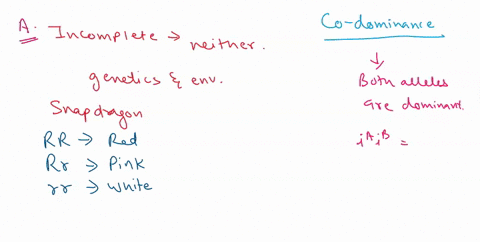 A. Incomplete → neither.
genetics & env.
Snapdragon
RR → Red
Rr → Pink
rr → White
Co-dominance
↓
Both alleles
are dominant.
i^A i^B =